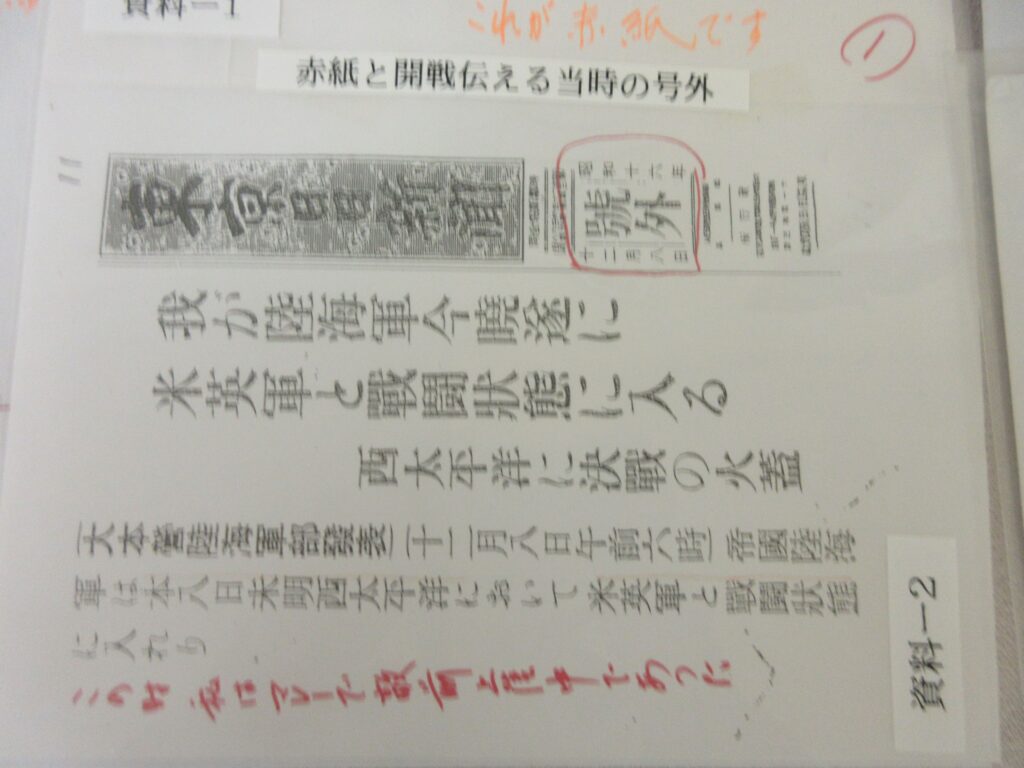 資料－1
これが赤紙です
①
赤紙と開戦伝える当時の号外
11
東京日日新聞
昭和十六年
號外
十二月八日
我が陸海軍今曉遂に
米英軍と戰鬪狀態に入る
西太平洋に決戰の火蓋
【大本營陸海軍部發表】(十二月八日午前六時)帝國陸海
軍は本八日未明西太平洋において米英軍と戰鬪狀態
に入れり
この時 私はマレーで敵前上陸中であった
資料－2